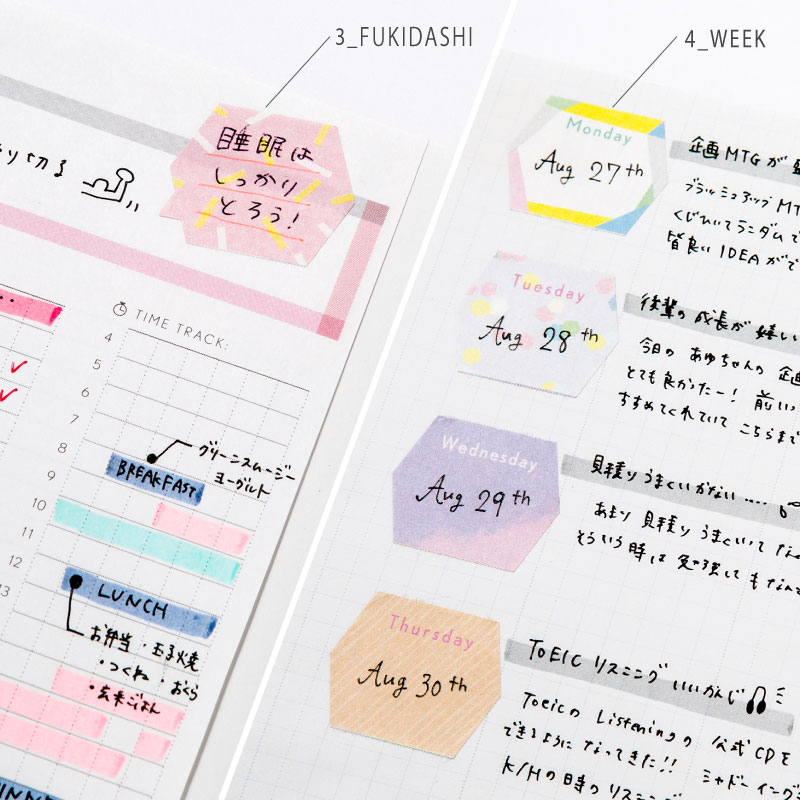 3_FUKIDASHI
4_WEEK
り切る
睡眠は
しっかり
とろう!
TIME TRACK:
4
5
6
7
8
9
10
11
12
13
グリーンスムージー
ヨーグルト
BREAKFAST
LUNCH
お弁当・玉子焼
・つくね・おくら
・玄米ごはん
Monday
Aug 27th
企画MTGが
ブラッシュアップMT
くじひいてランダムで
皆良いIDEAがで
Tuesday
Aug 28th
後輩の成長が嬉しい
今日のあゆちゃんの企画
とても良かったー!前いっ
すすめてくれていてこちらまで
Wednesday
Aug 29th
見積りうまくいかない....
あまり見積りうまくいてなん
そういう時は勉強してもなんで
Thursday
Aug 30th
TOEICリスニングいいかんじ
ToeicのListeningの公式CDを
できるようになってきた!!シャドーイング
K/Hの日時のリスニング